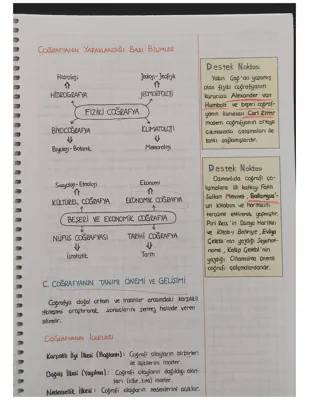 COĞRAFYANIN YARARLANDIĞI BAZI BİLİMLER
Hidroloji
Jeoloji-Jeofizik
HİDROGRAFYA
JEOMORFOLOJİ
FİZİKİ COĞRAFYA
BİYOCOĞRAFYA
KLİMATOLOJİ
Biyoloji-Botanik
Meteoroloji
Sosyoloji-Etnoloji
Ekonomi
KÜLTÜREL COĞRAFYA
EKONOMİK COĞRAFYA
BEŞERİ VE EKONOMİK COĞRAFYA
NÜFUS COĞRAFYASI
TARİHİ COĞRAFYA
İstatistik
Tarih
C. COĞRAFYANIN TANIMI ÖNEMİ VE GELİŞİMİ
Coğrafya doğal ortam ve insanlar arasındaki karşılıklı
etkileşimi araştırarak sonuçlarını sentez halinde veren
bilimdir.
COĞRAFYANIN İLKELERİ
Karşılıklı İlgi İlkesi (Bağlantı): Coğrafi olayların birbirleri
ile ilişkilerini inceler.
Dağılış İlkesi (Yayılma): Coğrafi olayların dağıldığı alan-
ları (ülke, kıta) inceler.
Nedensellik İlkesi: Coğrafi olayların nedenlerini açıklar.
Destek Noktası
Yakın Çağ'da yaşamış
olan fiziki coğrafyanın
kurucusu Alexander von
Humbolt ve beşeri coğraf-
yanın kurucusu Carl Ritter
modern coğrafyanın ortaya
çıkmasında çalışmaları ile
katkı sağlamışlardır.
Destek Noktası
Osmanlıda coğrafi ça-
lışmalara ilk katkıyı Fatih
Sultan Mehmet,
un kitabını ve haritasını
tercüme ettirerek yapmıştır.
Piri Reis'in Dünya Haritası
ve Kitab-ı Bahriye, Evliya
Çelebi'nin yazdığı Seyahat-
name, Katip Çelebi'nin
yazdığı Cihannüma önemli
coğrafi çalışmalardandır.